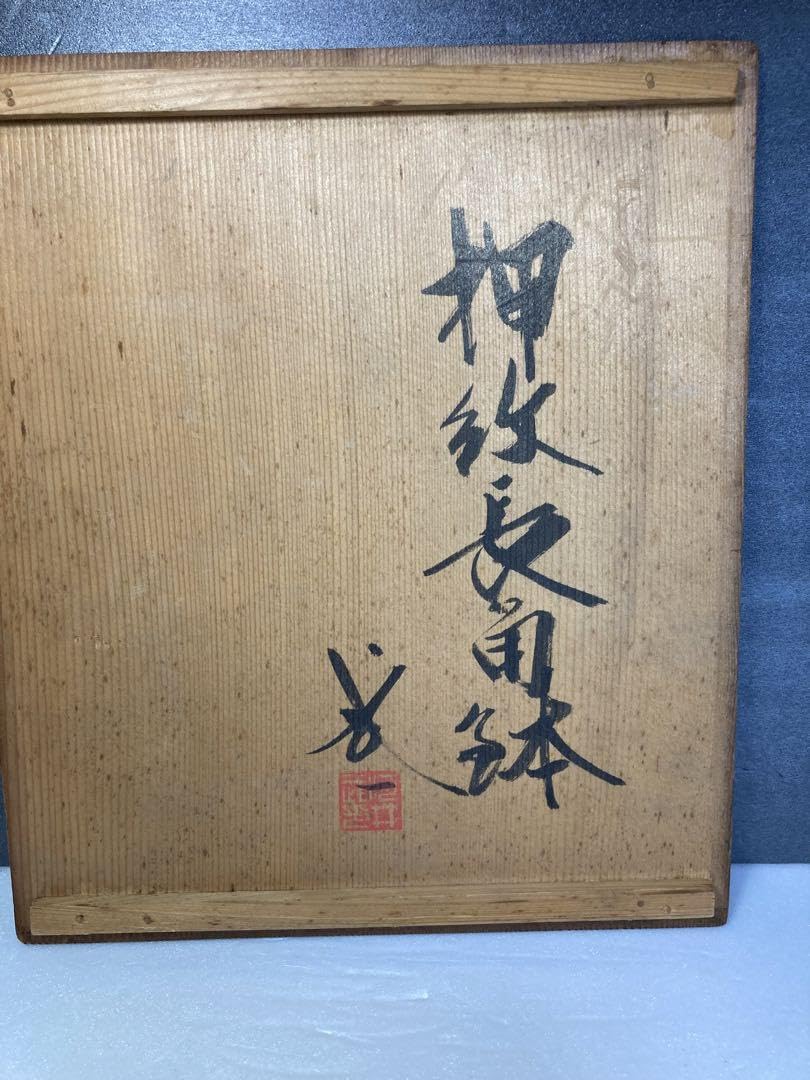 押紋長角鉢